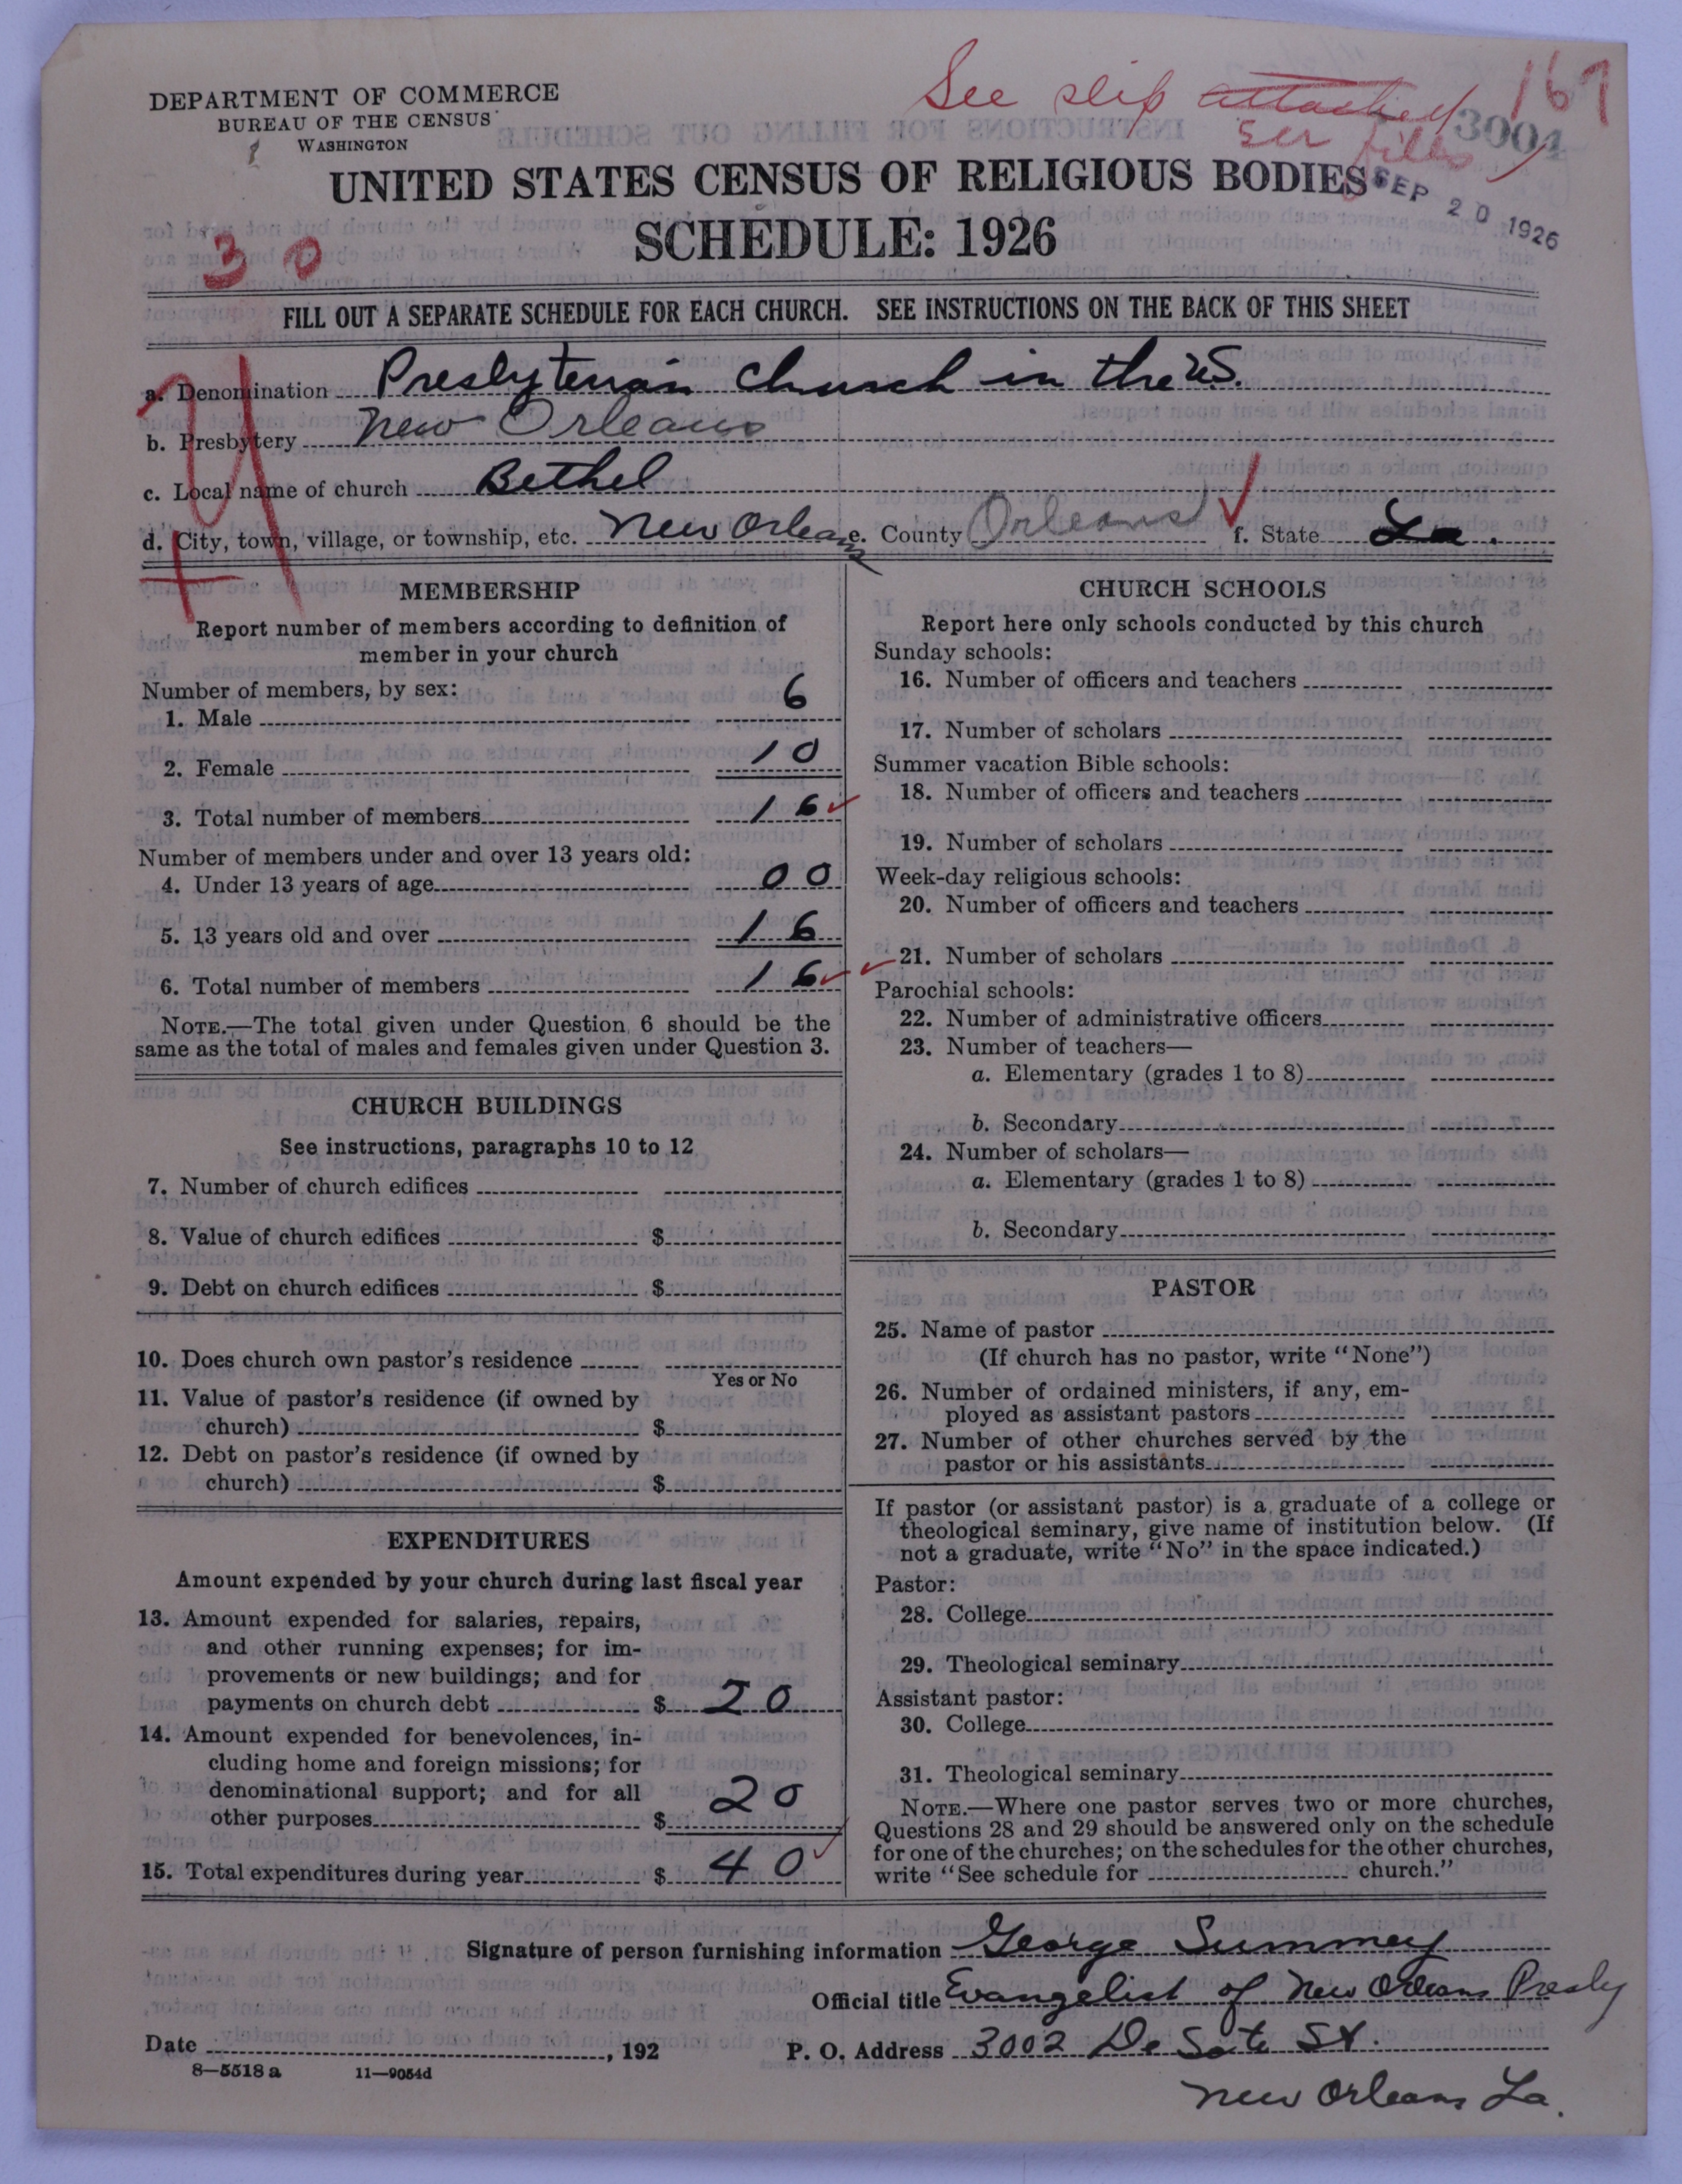 DEPARTMENT OF COMMERCE
BUREAU OF THE CENSUS
WASHINGTON
See slip attached
See files
167
3004
UNITED STATES CENSUS OF RELIGIOUS BODIES
SEP 20 1926
SCHEDULE: 1926
30
FILL OUT A SEPARATE SCHEDULE FOR EACH CHURCH. SEE INSTRUCTIONS ON THE BACK OF THIS SHEET
a. Denomination Presbyterian Church in the U.S.
b. Presbytery New Orleans
c. Local name of church Bethel
d. City, town, village, or township, etc. New Orleans e. County Orleans f. State La.
MEMBERSHIP
Report number of members according to definition of
member in your church
Number of members, by sex:
1. Male 6
2. Female 10
3. Total number of members 16
Number of members under and over 13 years old:
4. Under 13 years of age 00
5. 13 years old and over 16
6. Total number of members 16
NOTE.—The total given under Question 6 should be the
same as the total of males and females given under Question 3.
CHURCH BUILDINGS
See instructions, paragraphs 10 to 12
7. Number of church edifices
8. Value of church edifices $
9. Debt on church edifices $
10. Does church own pastor's residence
Yes or No
11. Value of pastor's residence (if owned by
church) $
12. Debt on pastor's residence (if owned by
church) $
EXPENDITURES
Amount expended by your church during last fiscal year
13. Amount expended for salaries, repairs,
and other running expenses; for im-
provements or new buildings; and for
payments on church debt $ 20
14. Amount expended for benevolences, in-
cluding home and foreign missions; for
denominational support; and for all
other purposes $ 20
15. Total expenditures during year $ 40
CHURCH SCHOOLS
Report here only schools conducted by this church
Sunday schools:
16. Number of officers and teachers
17. Number of scholars
Summer vacation Bible schools:
18. Number of officers and teachers
19. Number of scholars
Week-day religious schools:
20. Number of officers and teachers
21. Number of scholars
Parochial schools:
22. Number of administrative officers
23. Number of teachers—
a. Elementary (grades 1 to 8)
b. Secondary
24. Number of scholars—
a. Elementary (grades 1 to 8)
b. Secondary
PASTOR
25. Name of pastor
(If church has no pastor, write "None")
26. Number of ordained ministers, if any, em-
ployed as assistant pastors
27. Number of other churches served by the
pastor or his assistants
If pastor (or assistant pastor) is a graduate of a college or
theological seminary, give name of institution below. (If
not a graduate, write "No" in the space indicated.)
Pastor:
28. College
29. Theological seminary
Assistant pastor:
30. College
31. Theological seminary
NOTE.—Where one pastor serves two or more churches,
Questions 28 and 29 should be answered only on the schedule
for one of the churches; on the schedules for the other churches,
write "See schedule for church."
Signature of person furnishing information George Summey
Official title Evangelist of New Orleans Presby
Date , 192 P. O. Address 3002 De Soto St.
8—5518 a 11—9054d
New Orleans La.